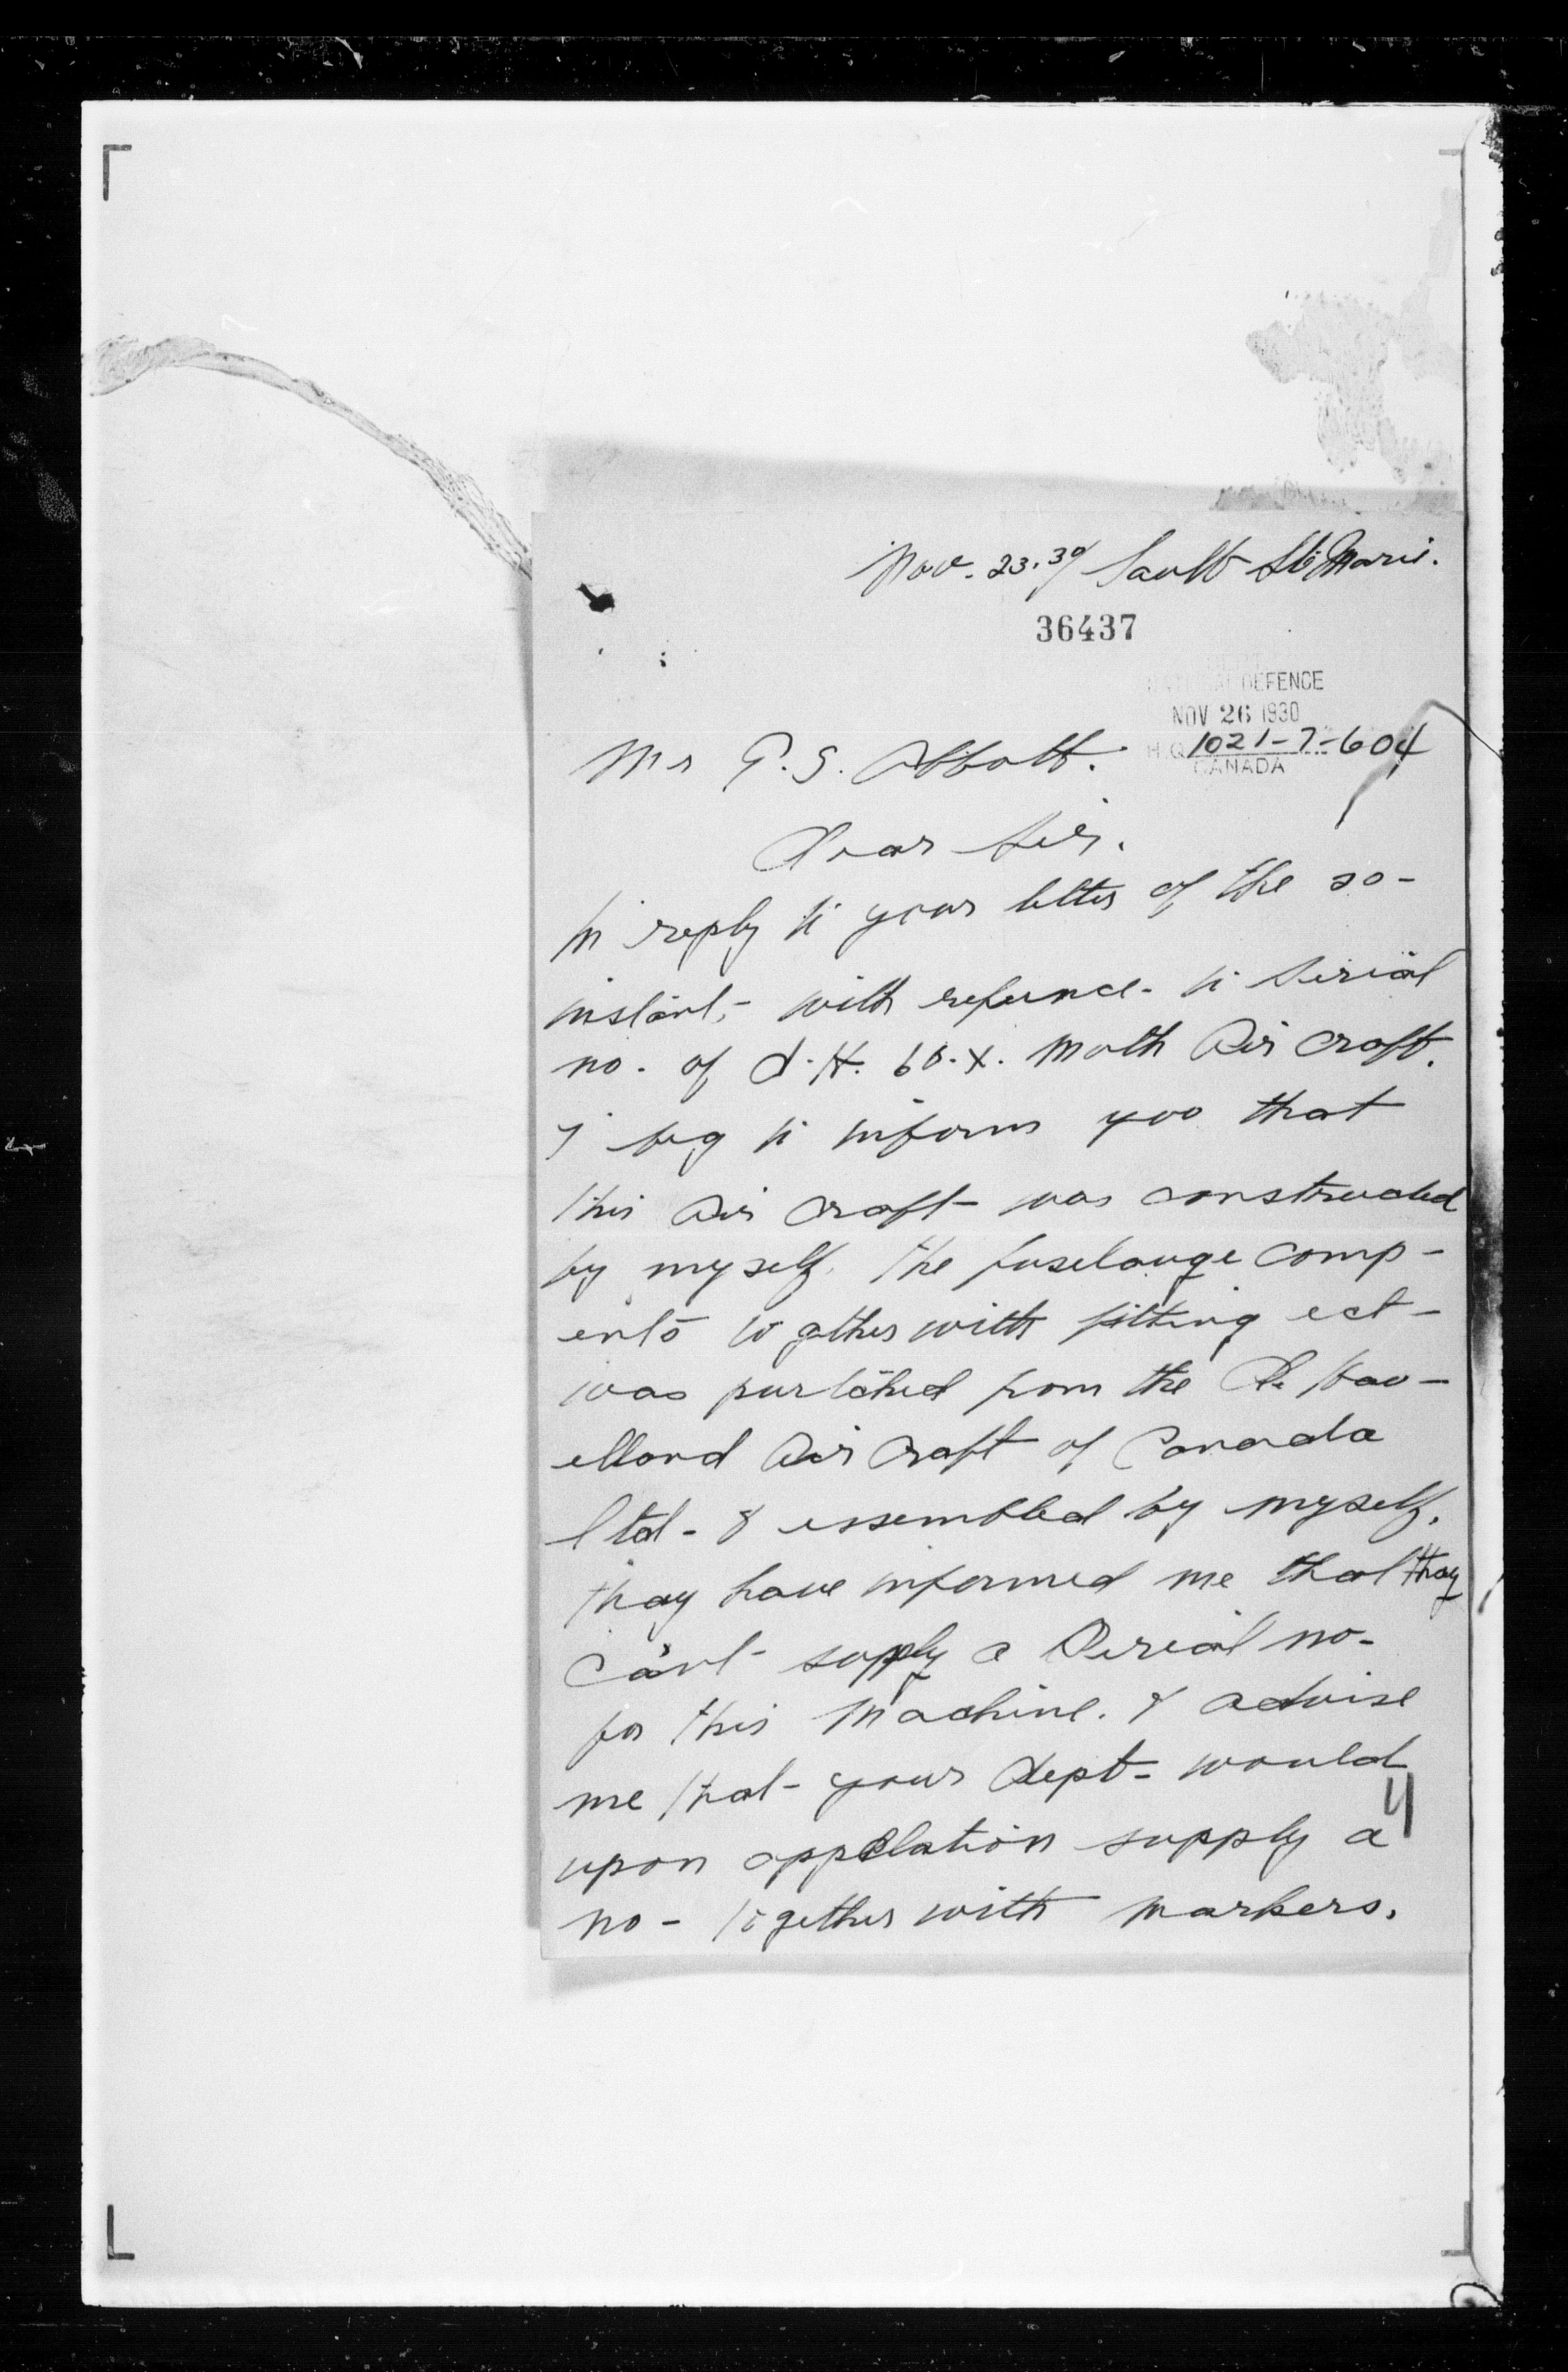 Nov. 23. 30/ Sault Ste Marie.
36437
DEPT.
NATIONAL DEFENCE
NOV 26 1930
Mr P. S. Abbott. H.Q. 1021-7-604
CANADA
Dear Sir.
In reply to your letter of the 20-
instant,- with refernce- to Serial
no. of d.H. 60.X. Moth Air craft.
I beg to inform you that
this Air craft- was constructed
by myself. the fuselauge comp-
ents to gether with fitting ect-
was purtched from the De Hav-
elland Air Craft of Canada
Ltd- & essembled by myself.
thay have informed me that thay
cant- supply a Serial no-
for this Machine. & advise
me that- your Dept- would
upon applelation supply a
no- together with markers.
4